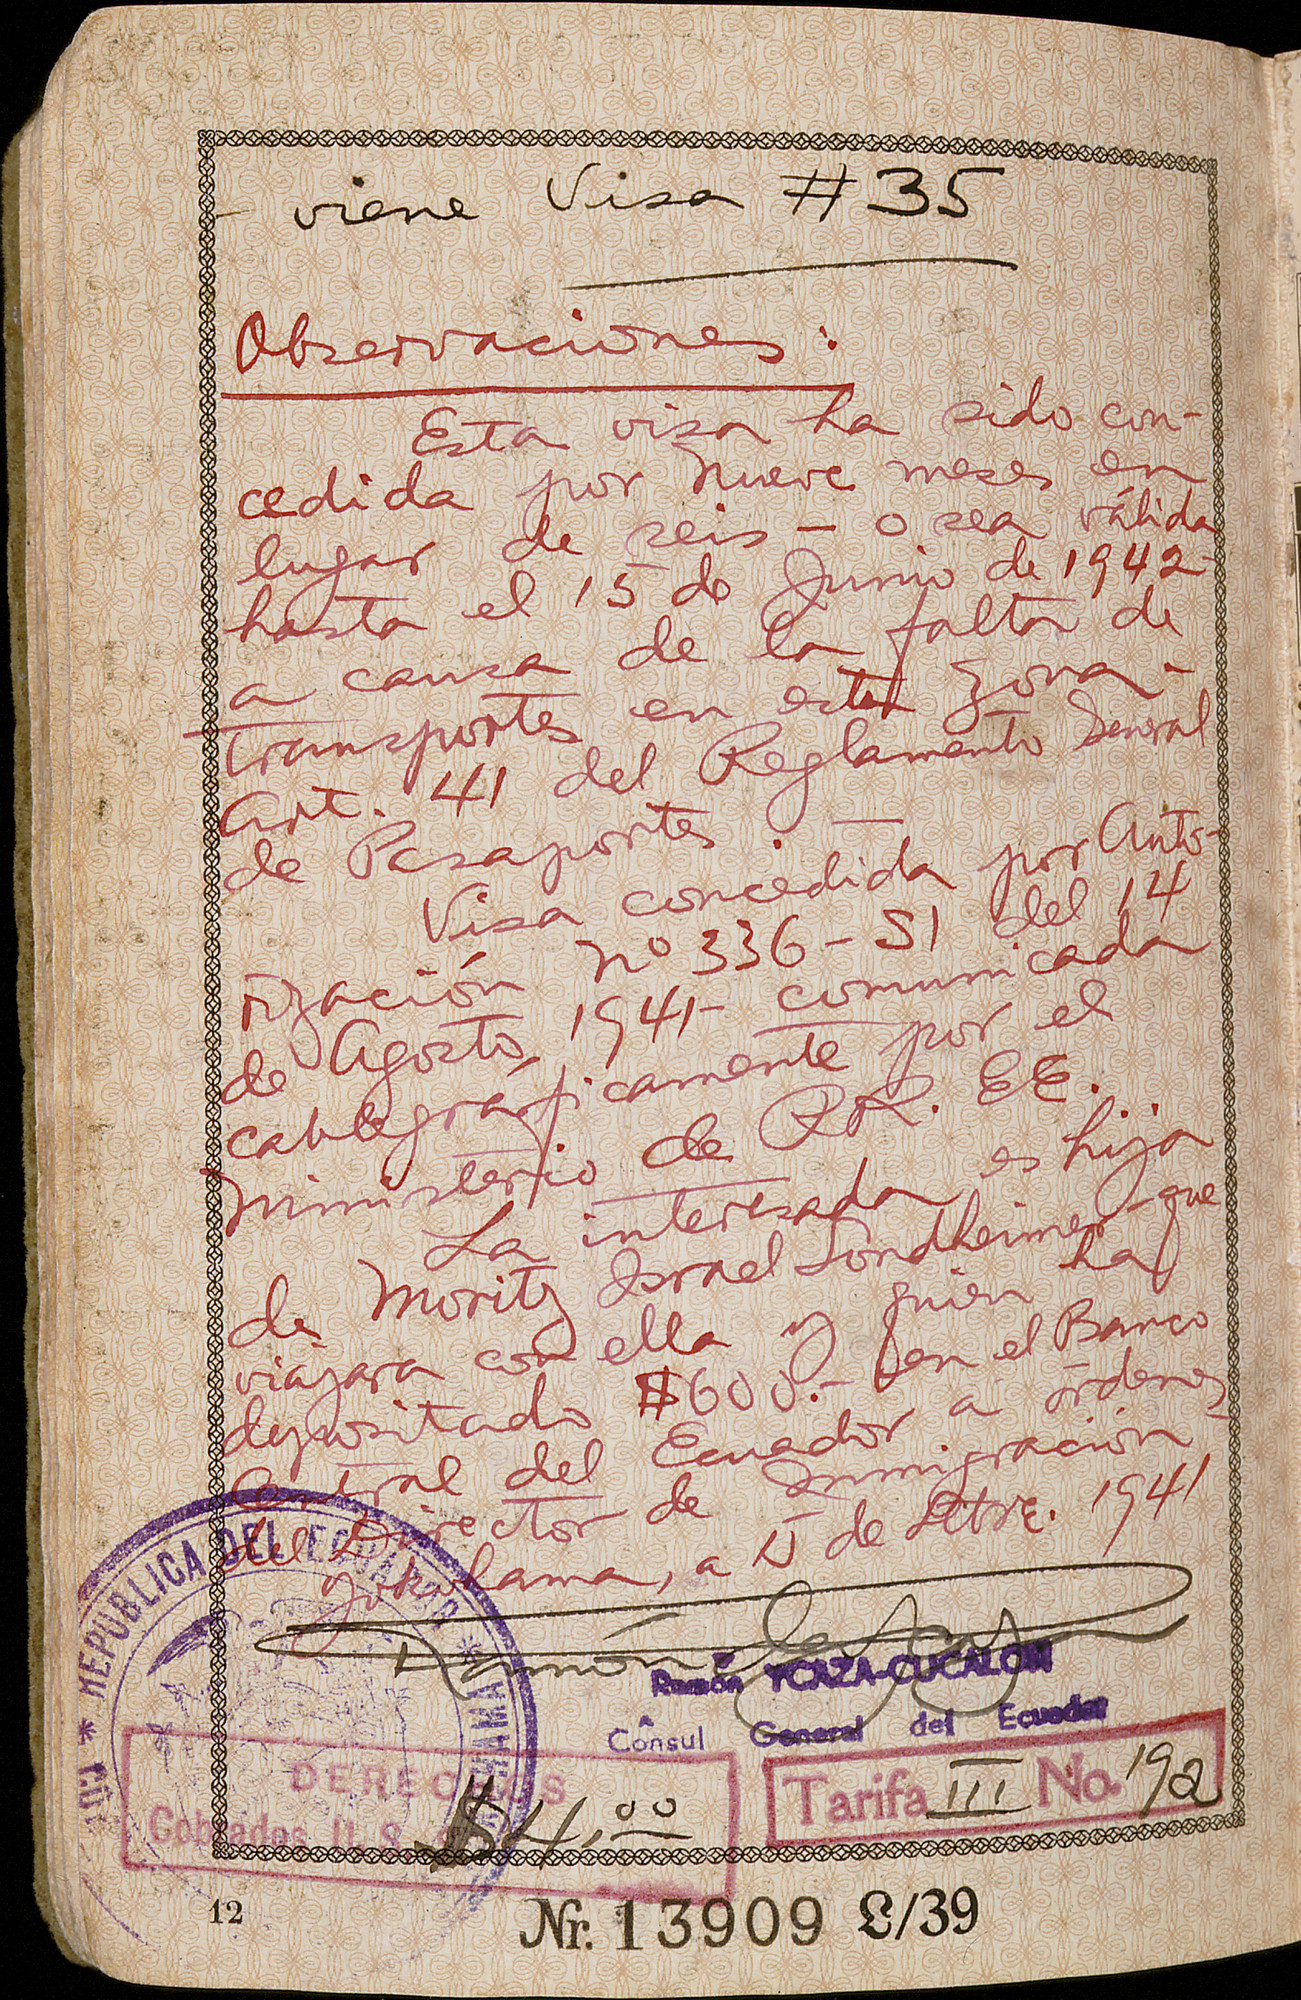 - viene Visa # 35
Observaciones:
Esta visa ha sido con-
cedida por nueve meses en
lugar de seis - o sea válida
hasta el 15 de Junio de 1942
a causa de la falta de
transportes en esta zona -
Art. 41 del Reglamento General
de Pasaportes. -
Visa concedida por Auto-
rización No 336-SI del 14
de Agosto, 1941 - comunicada
cablegraficamente por el
Ministerio de RR. EE.
La interesada es hija
de Moritz Israel Sondheimer que
viajara con ella y quien ha
depositado $600.- en el Banco
Central del Ecuador a órdenes
del Director de Inmigración
Yokohama, a 15 de Setbre. 1941
Ramón YCAZA-CUCALON
Cônsul General del Ecuador
REPUBLICA DEL ECUADOR
DERECHOS
Cobrados U. S. $4,00
Tarifa III No. 192
12
Nr. 13909 L/39